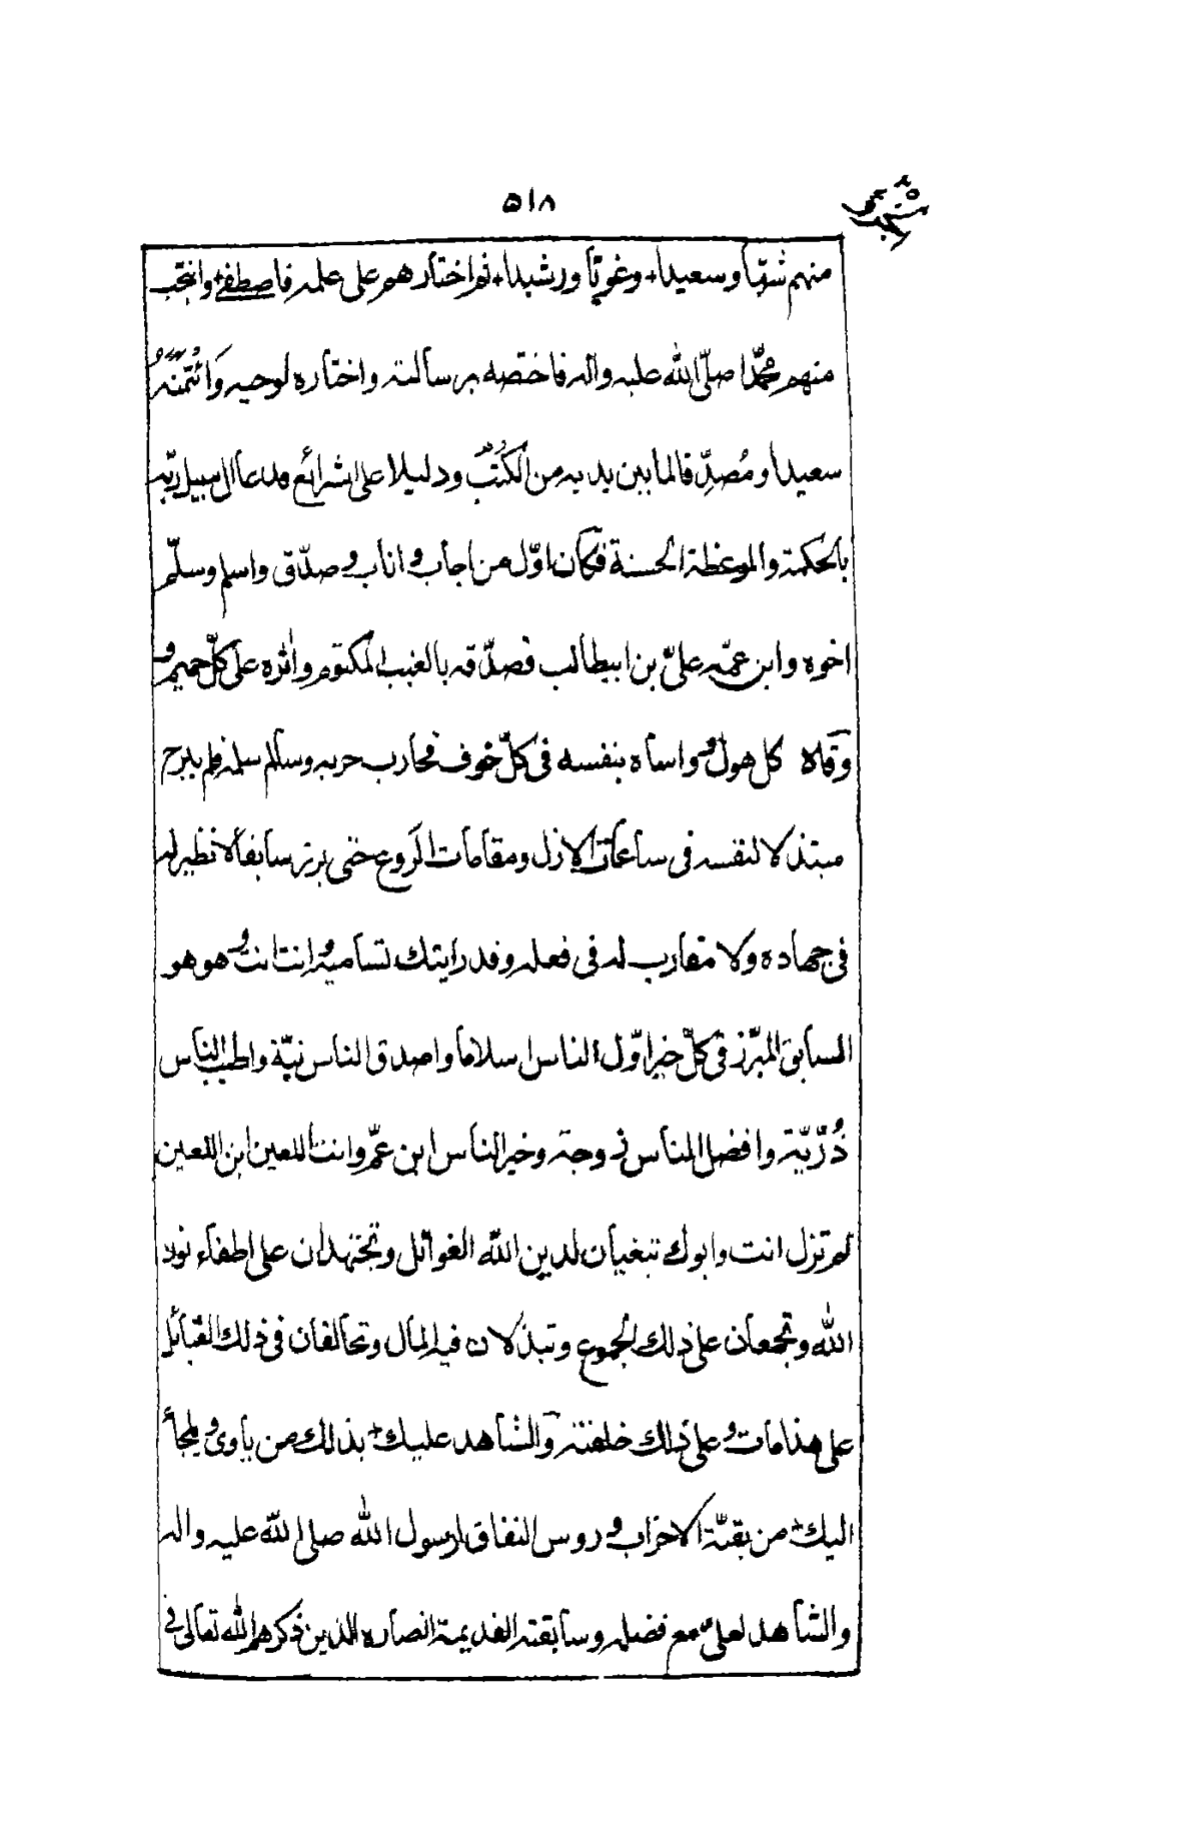 ٥١٨
منهم شقيّا وسعيدا وغويّا ورشيدا ثم اختارهم على علمه فاصطفى وانتجب
منهم محمّدا صلّى الله عليه واله فاختصه برسالته واختاره لوحيه وَائْتَمَنَهُ
سعيدا ومُصدِّقا لما بين يديه من الكُتُب ودليلا على شرائع فدعا الى سبيل ربّه
بالحكمة والموعظة الحسنة فكان اوّل من اجاب واناب وصدّق واسلم وسلّم
اخوه وابن عمّه علىّ بن ابيطالب فصدّقه بالغيب المكتوم واثره على كلّ حميم و
وقاه كل هول وواساه بنفسه فى كلّ خوف فحارب حربه وسالم سلمه فلم يبرح
مبتذلا لنفسه فى ساعات الازل ومقامات الروع حتى برز سابقا لا نظير له
فى جهاده ولا مقارب له فى فعله وقد رايتك تساميه وانت انت وهو هو
السابق المبرّز فى كلّ خير اوّل الناس اسلاما واصدق الناس نيّة واطيب الناس
ذُرّيّة وافضل الناس زوجة وخير الناس ابن عمّ وانت اللعين ابن اللعين
لم تزل انت وابوك تبغيان لدين الله الغوائل وتجتهدان على اطفاء نور
الله وتجمعان على ذلك الجموع وتبذلان فيه المال وتحالفان فى ذلك القبائل
على هذا مات وعلى ذلك خلفته والشاهد عليك بذلك من ياوى ويلجأ
اليك من بقيّة الاحزاب وروس النفاق لرسول الله صلى الله عليه واله
والشاهد لعلىّ مع فضله وسابقته القديمة انصاره الذين ذكرهم الله تعالى فى